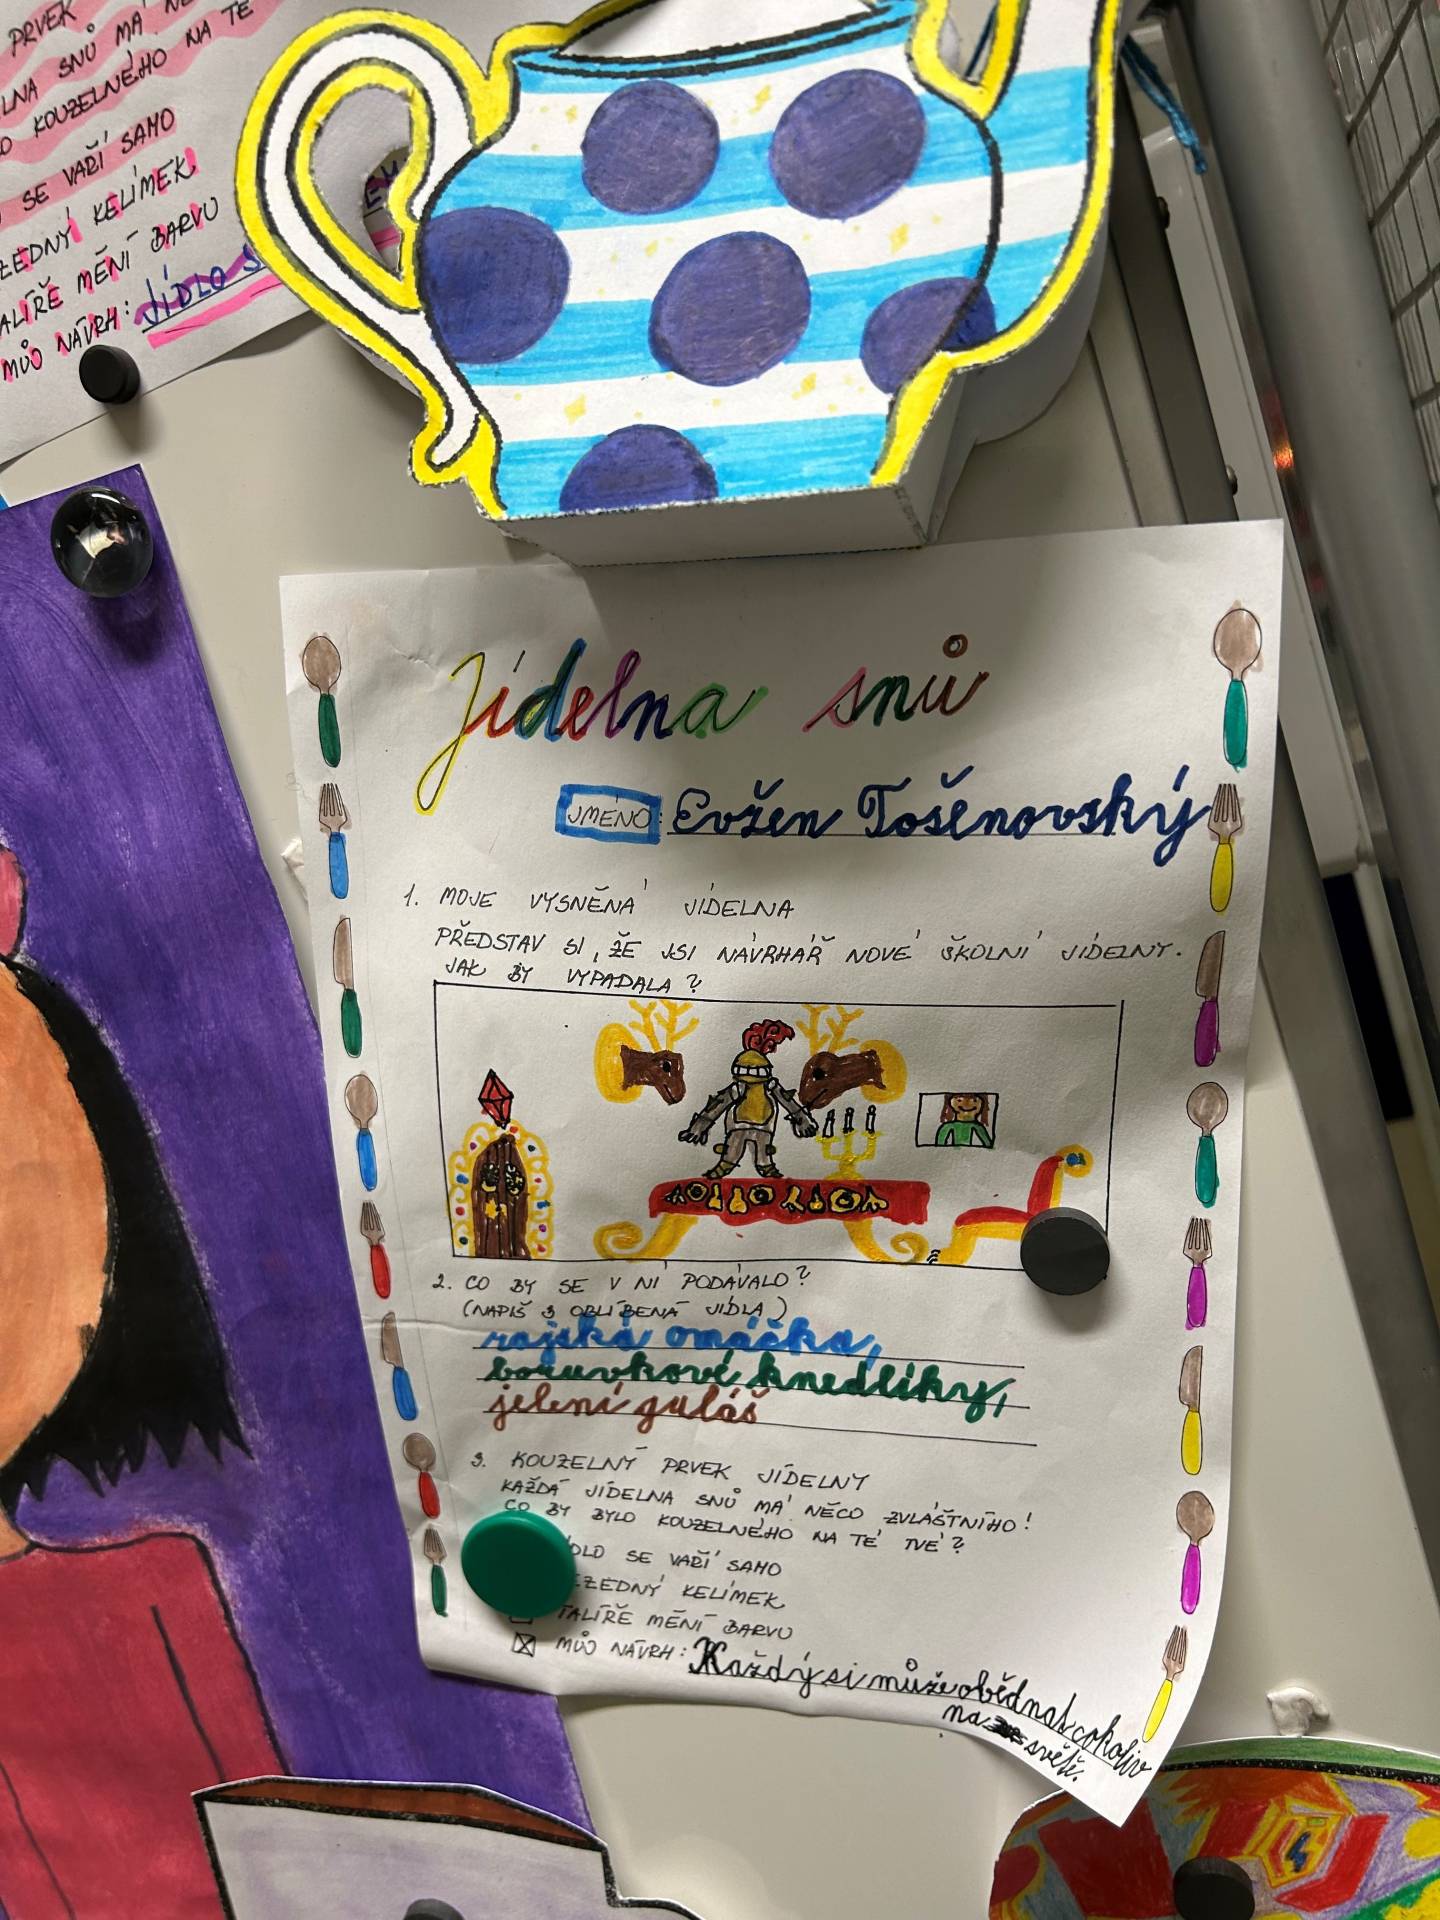 PRVEK
LNA SNŮ MÁ NĚ
O KOUZELNÉHO NA TÉ
SE VAŘÍ SAMO
ZEDNÝ KELÍMEK
ALÍŘE MĚNÍ BARVU
MŮJ NÁVRH: JÍDLO S
Jídelna snů
JMÉNO: Evžen Tošenovský
1. MOJE VYSNĚNÁ JÍDELNA
PŘEDSTAV SI, ŽE JSI NÁVRHÁŘ NOVÉ ŠKOLNÍ JÍDELNY.
JAK BY VYPADALA?
2. CO BY SE V NÍ PODÁVALO?
(NAPIŠ 3 OBLÍBENÁ JÍDLA)
rajská omáčka,
boruvkové knedlíky,
jelení guláš
3. KOUZELNÝ PRVEK JÍDELNY
KAŽDÁ JÍDELNA SNŮ MÁ NĚCO ZVLÁŠTNÍHO!
CO BY BYLO KOUZELNÉHO NA TÉ TVÉ?
ÍDLO SE VAŘÍ SAMO
EZEDNÝ KELÍMEK
TALÍŘE MĚNÍ BARVU
MŮJ NÁVRH: Každý si může obědnat cokoliv
na světě.